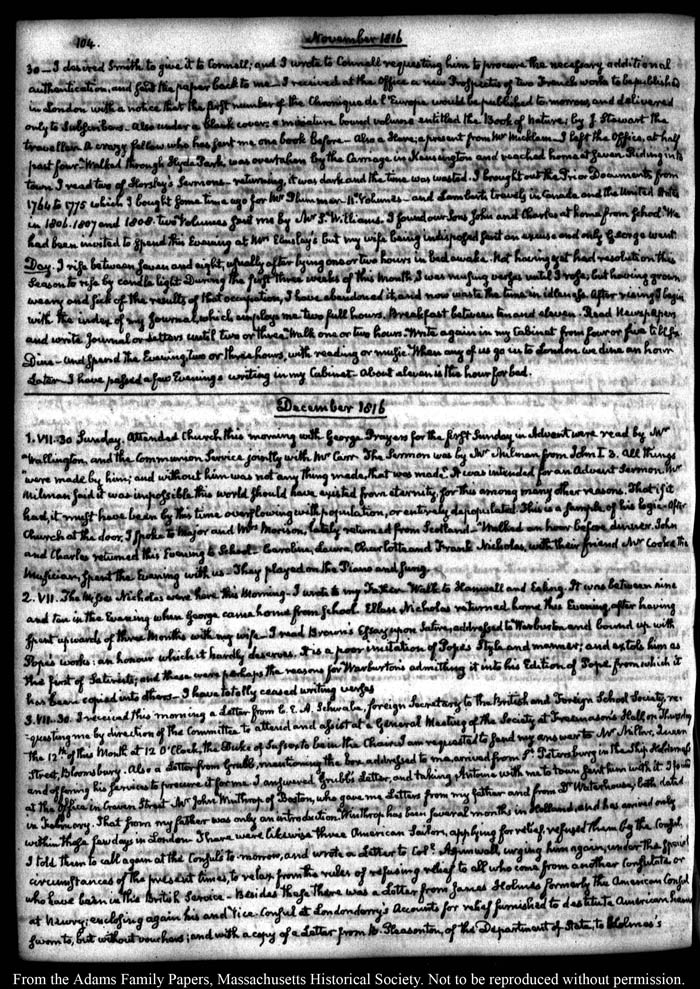 104.
November 1816
30 — I desired Smith to give it to Connell; and I wrote to Connell requesting him to procure the necessary additional
authentication, and send the paper back to me — I received at the Office a new Prospectus of two French works to be published
in London with a notice that the first number of the Chronique de l'Europe would be published to-morrow and delivered
only to Subscribers. Also under a black cover; a miniature bound volume entitled the Book of Nature; by J. Stewart the
traveller. A crazy fellow who has sent me one book before — Also a Hare; a present from Mr Micklem. I left the Office, at half
past four. Walked through Hyde Park, was overtaken by the Carriage in Kensington and reached home at seven. Riding into
town I read two of Horsley's Sermons — returning, it was dark and the time was wasted. I brought out the Prior Documents, from
1764 to 1775 which I bought some time ago for Mr Plummer — 11 Volumes — and Lambert's travels in Canada and the United States
in 1806. 1807 and 1808. two Volumes sent me by Mr S. Williams. I found our Sons John and Charles at home from School. We
had been invited to spend this Evening at Mrs Elmslay's but my wife being indisposed sent an excuse and only George went.
Day. I rise between seven and eight, usually after lying one or two hours in bed awake. Not having yet had resolution this
Season to rise by candle light. During the first three weeks of this Month I was musing verses until I rose; but having grown
weary and sick of the results of that occupation, I have abandoned it and now waste the time in idleness. After rising I begin
with the index of my Journal, which employs me two full hours. Breakfast between ten and eleven. Read Newspapers
and write Journal or Letters until two or three. Walk one or two hours. Write again in my Cabinet from four or five till six.
Dine — And spend the Evening, two or three hours, with reading or music. When any of us go in to London we dine an hour
later — I have passed a few Evenings writing in my Cabinet — About eleven is the hour for bed.
December 1816
1. VII.30 Sunday. Attended Church this morning with George. Prayers for the first Sunday in Advent were read by Mr
Wallington, and the Communion Service jointly with Mr Carr. The Sermon was by Mr Milman from John I. 3. All things
"were made by him; and without him was not any thing made, that was made". It was intended for an Advent Sermon. Mr
Milman said it was impossible this world should have existed from eternity, for this among many other reasons. That if it
had, it must have been by this time overflowing with population, or entirely depopulated. This is a sample of his logic. After
Church at the door, I spoke to Major and Mrs Morison, lately returned from Scotland — Walked an hour before dinner. John
and Charles returned this Evening to School. Caroline, Laura, Charlotte and Frank Nicholas, with their friend Mr Cooke the
Musician, spent the Evening with us. They played on the Piano and sung.
2. VII. The Misses Nicholas were here this Morning — I wrote to my Father. Walk to Hanwell and Ealing. It was between nine
and ten in the Evening when George came home from School. Ellen Nicholas returned home this Evening, after having
spent upwards of three Months with my wife — I read Brown's Essay upon Satire, addressed to Warburton and bound up with
Pope's works: an honour which it hardly deserves. It is a poor imitation of Pope's Style and manner; and extols him as
the first of Satirists; and these were perhaps the reasons for Warburton's admitting it into his Edition of Pope from which it
has been copied into others — I have totally ceased writing verses
3. VII.30. I received this morning a Letter from C. E. A. Schwabe, foreign Secretary to the British and Foreign School Society, re-
-questing me by direction of the Committee to attend and assist at a General Meeting of the Society at Freemason's Hall, on Thursday
the 12th of this Month at 12 O'Clock, the Duke of Sussex to be in the Chair. I am requested to send my answer to Mr Millar, Queen
Street, Bloomsbury. Also a Letter from Grubb, mentioning the box addressed to me, arrived from St Petersburg in the Ship Holderness
and offering his service to procure it for me. I answered Grubb's Letter, and taking Antoine with me to town sent him with it. I found
at the Office in Craven Street Mr John Winthrop of Boston, who gave me Letters from my father and from Dr Waterhouse; both dated
in February. That from my father was only an introduction. Winthrop has been several months in Holland, and has arrived only
within these few days in London. There were likewise three American Sailors, applying for relief, refused them by the Consul,
I told them to call again at the Consul's to-morrow, and wrote a Letter to Coll. Aspinwall, urging him again, under the special
circumstances of the present times, to relax from the rules of refusing relief to all who come from another Consulate or
who have been in this British Service — Besides these there was a Letter from James Holmes formerly the American Consul
at Newry; enclosing again his and Vice-Consul at Londonderry's Accounts for relief furnished to destitute American Seamen
sworn to, but without vouchers; and with a copy of a Letter from S. Pleasonton, of the Department of State, to Holmes's
From the Adams Family Papers, Massachusetts Historical Society. Not to be reproduced without permission.